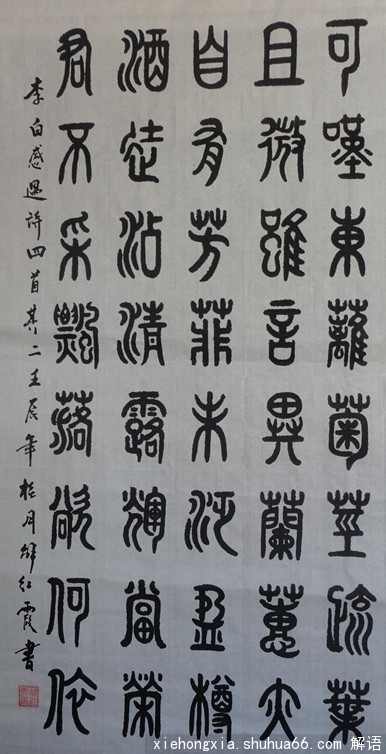 可嘆東蘺菊莖疏葉
且微雖言異蘭蕙亦
自有芳菲未泛盈樽
酒徒沾清露輝當榮
君不采飄落欲何依
李白感遇詩四首其二壬辰年桂月解红霞書
xiehongxia.shuhua66.com 解语